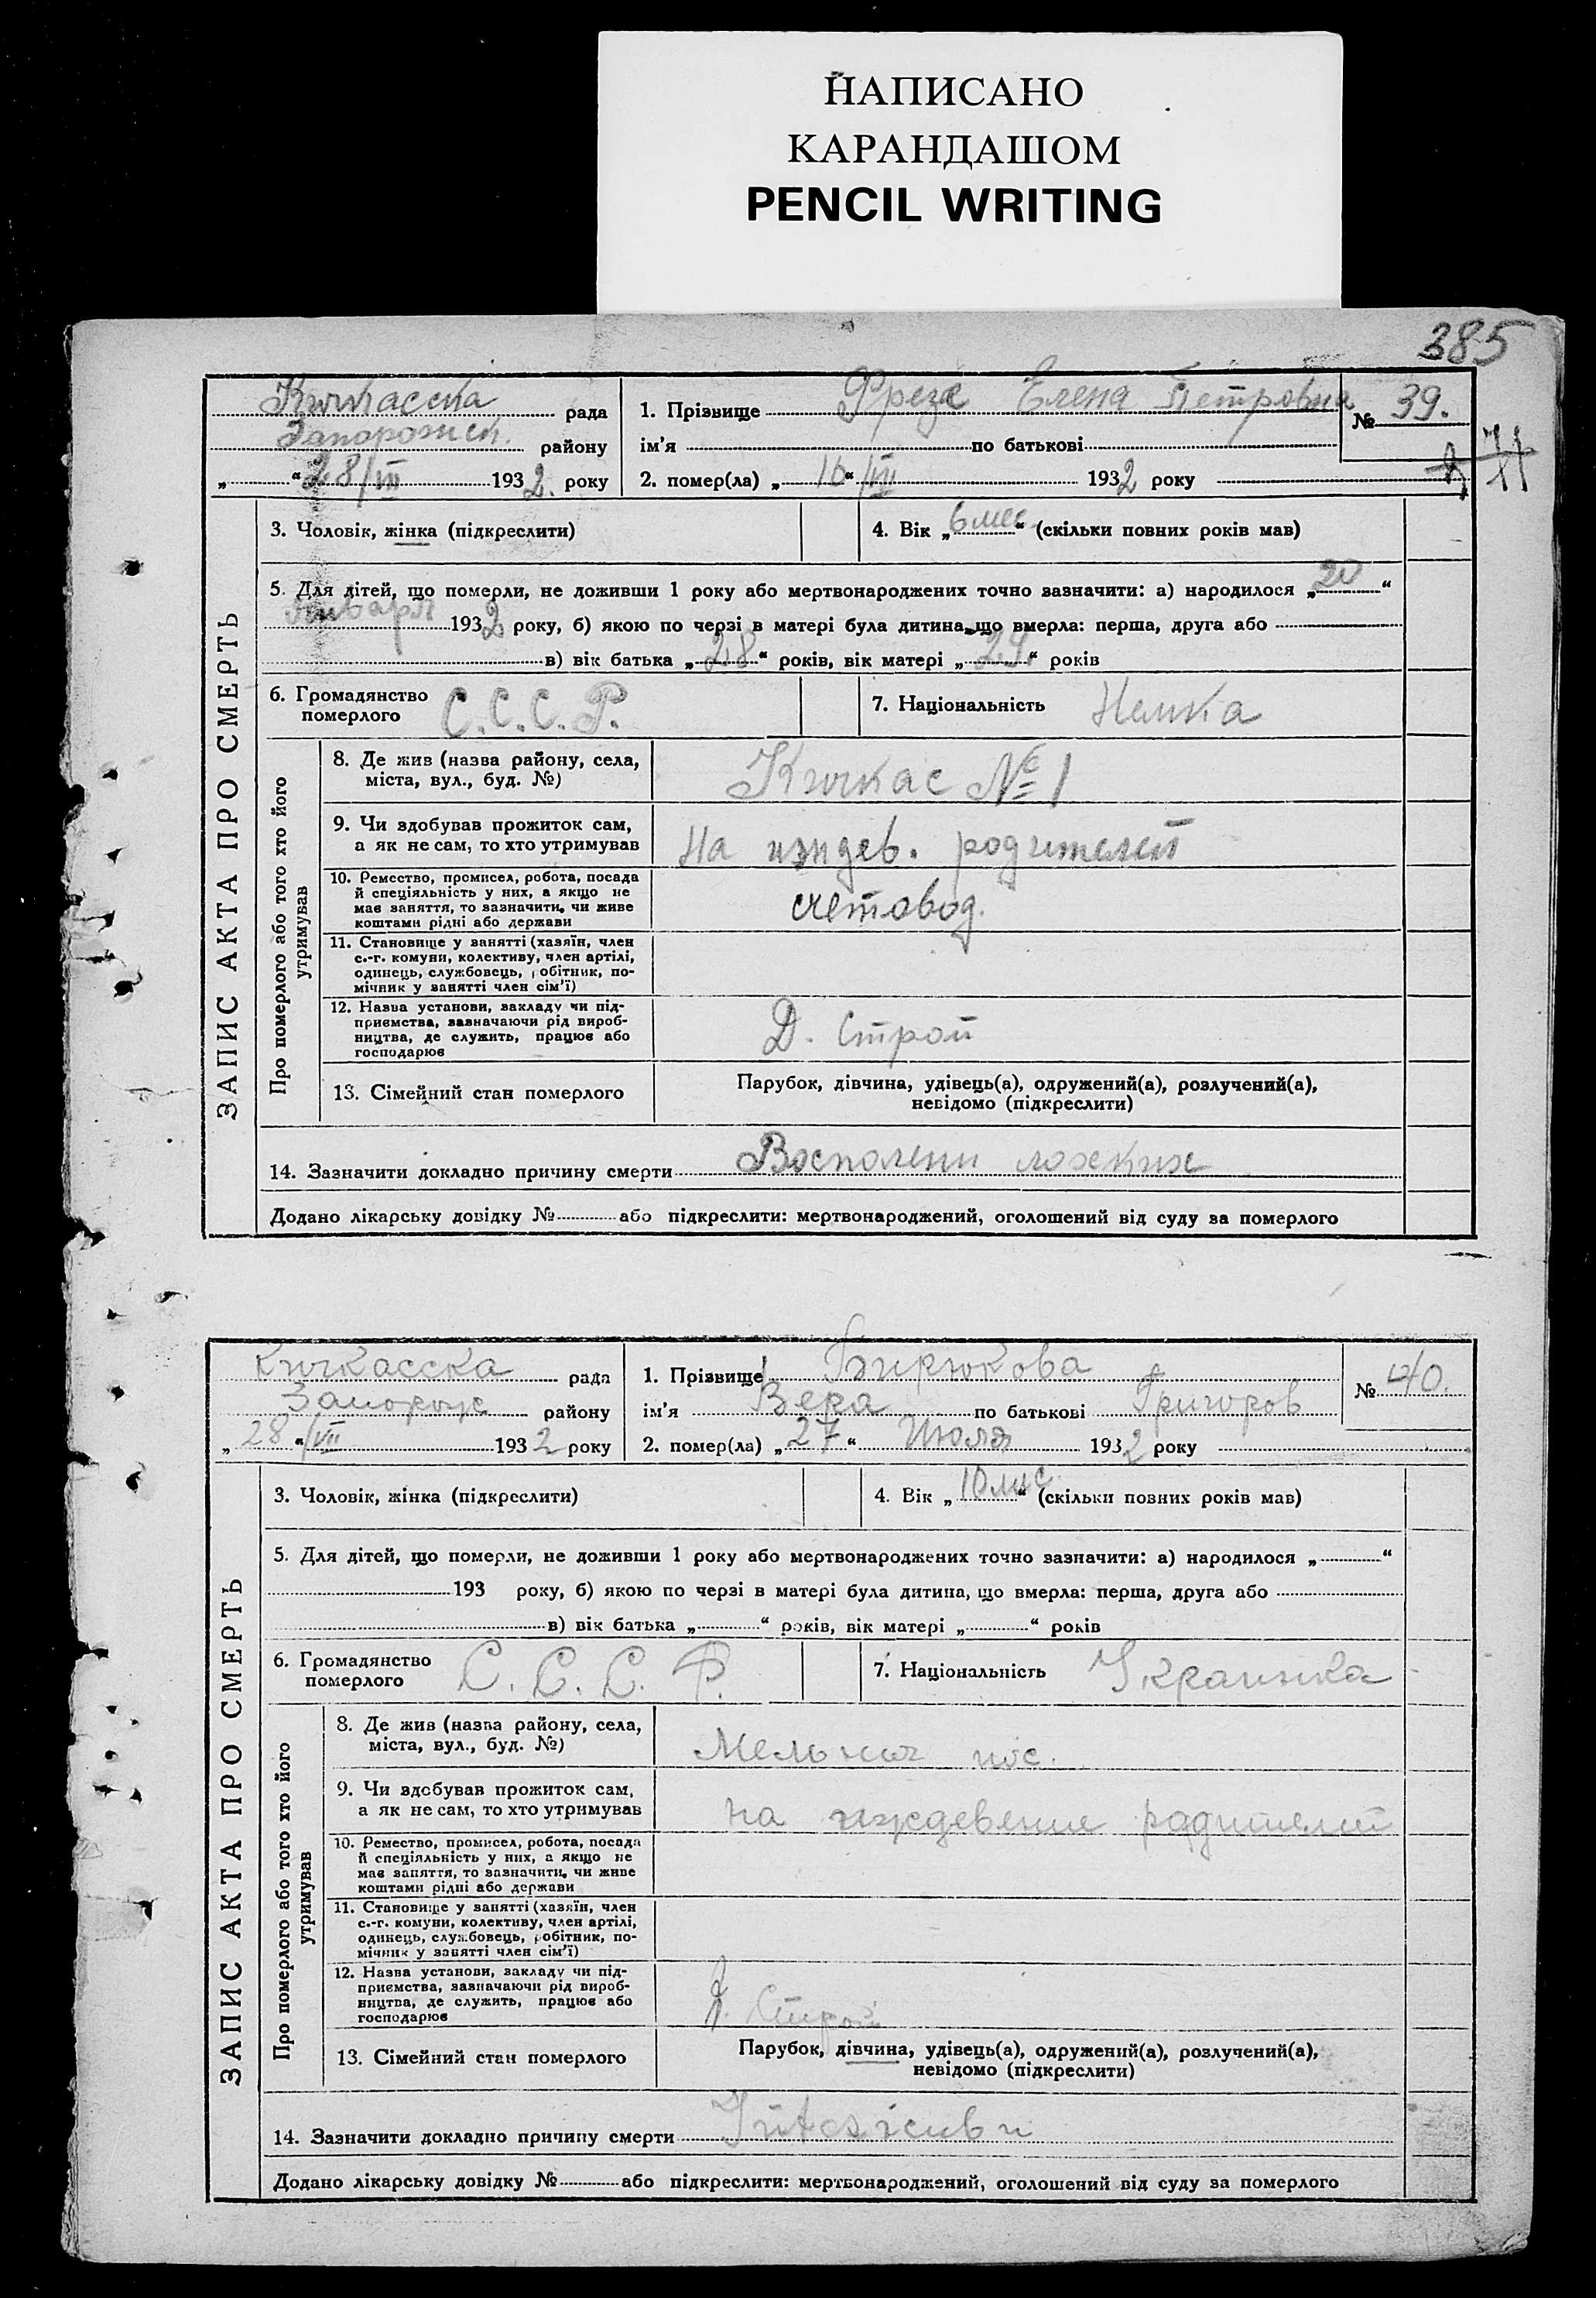 НАПИСАНО
КАРАНДАШОМ
PENCIL WRITING
385
Кичкасска рада
Запорожск. району
„ “ 28/VII 1932. року
1. Прізвище Фрезе Елена Петровна
ім’я по батькові
№ 39.
2. помер(ла) „ 16 “ /VII 1932 року
ЗАПИС АКТА ПРО СМЕРТЬ
3. Чоловік, жінка (підкреслити)
4. Вік „ 6 мес. “ (скільки повних років мав)
5. Для дітей, що померли, не доживши 1 року або мертвонароджених точно зазначити: а) народилося „ 20 “
Января 1932 року, б) якою по черзі в матері була дитина, що вмерла: перша, друга або
в) вік батька „ 28 “ років, вік матері „ 29. “ років
6. Громадянство
померлого
С.С.С.Р.
7. Національність Немка
Про померлого або того хто його
утримував
8. Де жив (назва району, села,
міста, вул., буд. №)
Кичкас № 1
9. Чи здобував прожиток сам,
а як не сам, то хто утримував
На иждев. родителей
10. Ремество, промисел, робота, посада
й спеціяльність у них, а якщо не
має заняття, то зазначити, чи живе
коштами рідні або держави
счетовод.
11. Становище у занятті (хазяїн, член
с.-г. комуни, колективу, член артілі,
одинець, службовець, робітник, по-
мічник у занятті член сім’ї)
12. Назва установи, закладу чи під-
приємства, зазначаючи рід вироб-
ництва, де служить, працює або
господарює
Д. Строй
13. Сімейний стан померлого
Парубок, дівчина, удівець(а), одружений(а), розлучений(а),
невідомо (підкреслити)
14. Зазначити докладно причину смерти Воспалени
Додано лікарську довідку № або підкреслити: мертвонароджений, оголошений від суду за померлого
Кичкасска рада
Запорож району
„ 28 “ /VII 1932 року
1. Прізвище Бирюкова
ім’я Вера по батькові Григоров
№ 40.
2. помер(ла) „ 27 “ Июля 1932 року
ЗАПИС АКТА ПРО СМЕРТЬ
3. Чоловік, жінка (підкреслити)
4. Вік „ 10 мис “ (скільки повних років мав)
5. Для дітей, що померли, не доживши 1 року або мертвонароджених точно зазначити: а) народилося „ “
193 року, б) якою по черзі в матері була дитина, що вмерла: перша, друга або
в) вік батька „ “ років, вік матері „ “ років
6. Громадянство
померлого
С.С.С.Р.
7. Національність Украинка
Про померлого або того хто його
утримував
8. Де жив (назва району, села,
міста, вул., буд. №)
пос.
9. Чи здобував прожиток сам,
а як не сам, то хто утримував
на иждевение родителей
10. Ремество, промисел, робота, посада
й спеціяльність у них, а якщо не
має заняття, то зазначити, чи живе
коштами рідні або держави
11. Становище у занятті (хазяїн, член
с.-г. комуни, колективу, член артілі,
одинець, службовець, робітник, по-
мічник у занятті член сім’ї)
12. Назва установи, закладу чи під-
приємства, зазначаючи рід вироб-
ництва, де служить, працює або
господарює
Д. Строй
13. Сімейний стан померлого
Парубок, дівчина, удівець(а), одружений(а), розлучений(а),
невідомо (підкреслити)
14. Зазначити докладно причину смерти
Додано лікарську довідку № або підкреслити: мертвонароджений, оголошений від суду за померлого